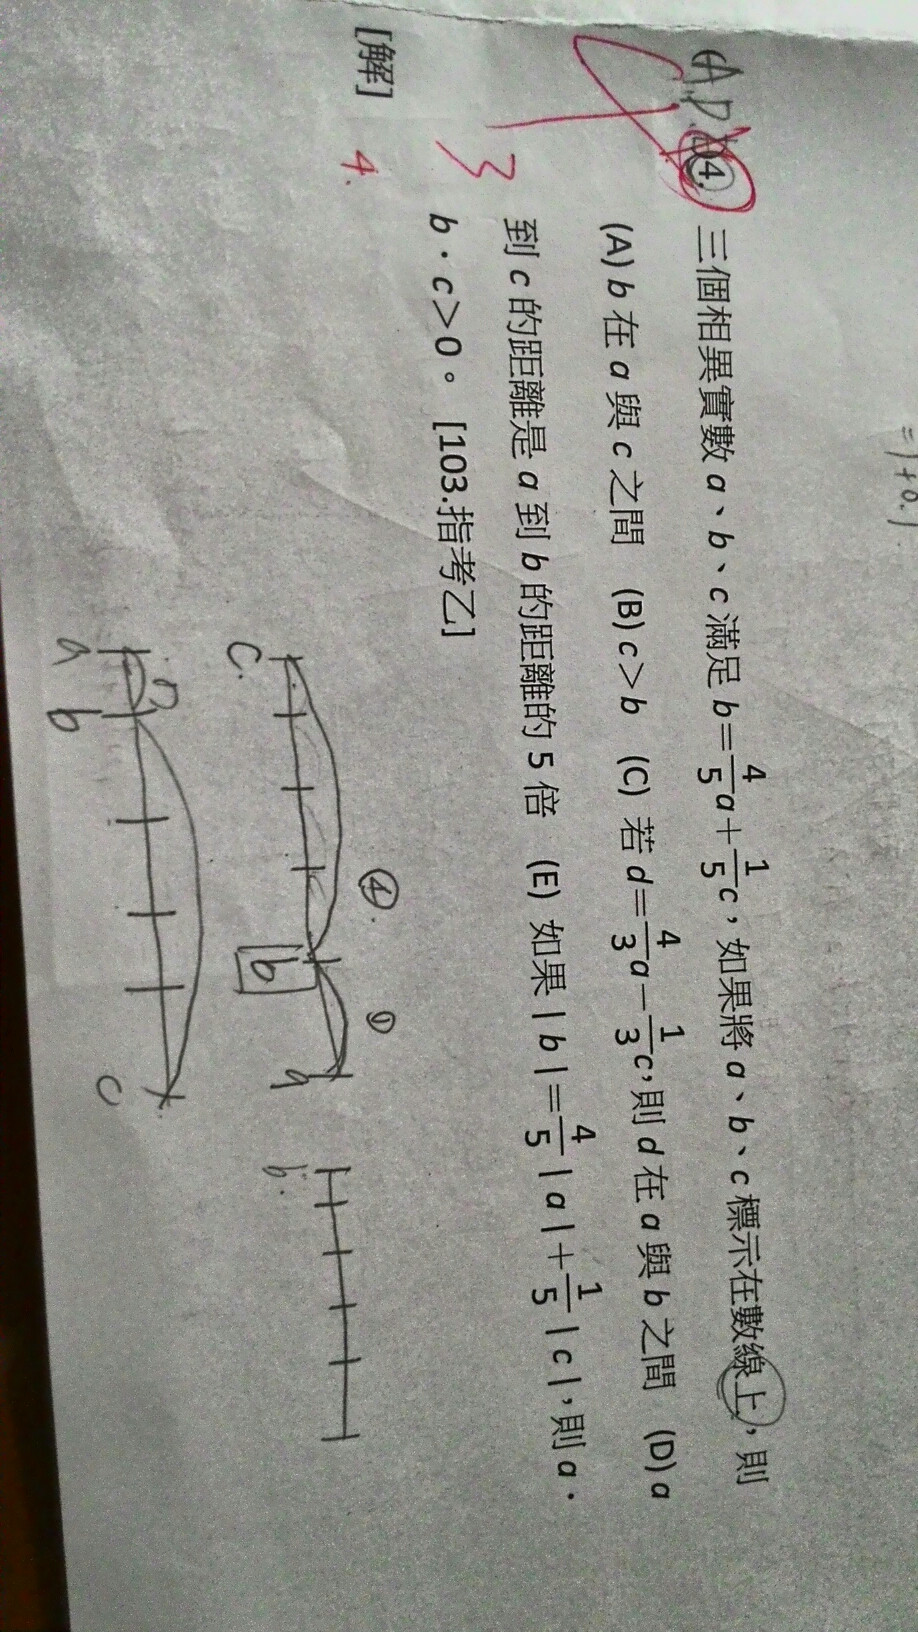 =1+0.1
(A,D)
4. 三個相異實數 a、b、c 滿足 b=4/5a+1/5c，如果將 a、b、c 標示在數線上，則
(A) b 在 a 與 c 之間 (B) c>b (C) 若 d=4/3a−1/3c，則 d 在 a 與 b 之間 (D) a
到 c 的距離是 a 到 b 的距離的 5 倍 (E) 如果 |b|=4/5|a|+1/5|c|，則 a．
b．c>0。 [103.指考乙]
3
[解]
4.
④. ①
c. b a
b.
a b c